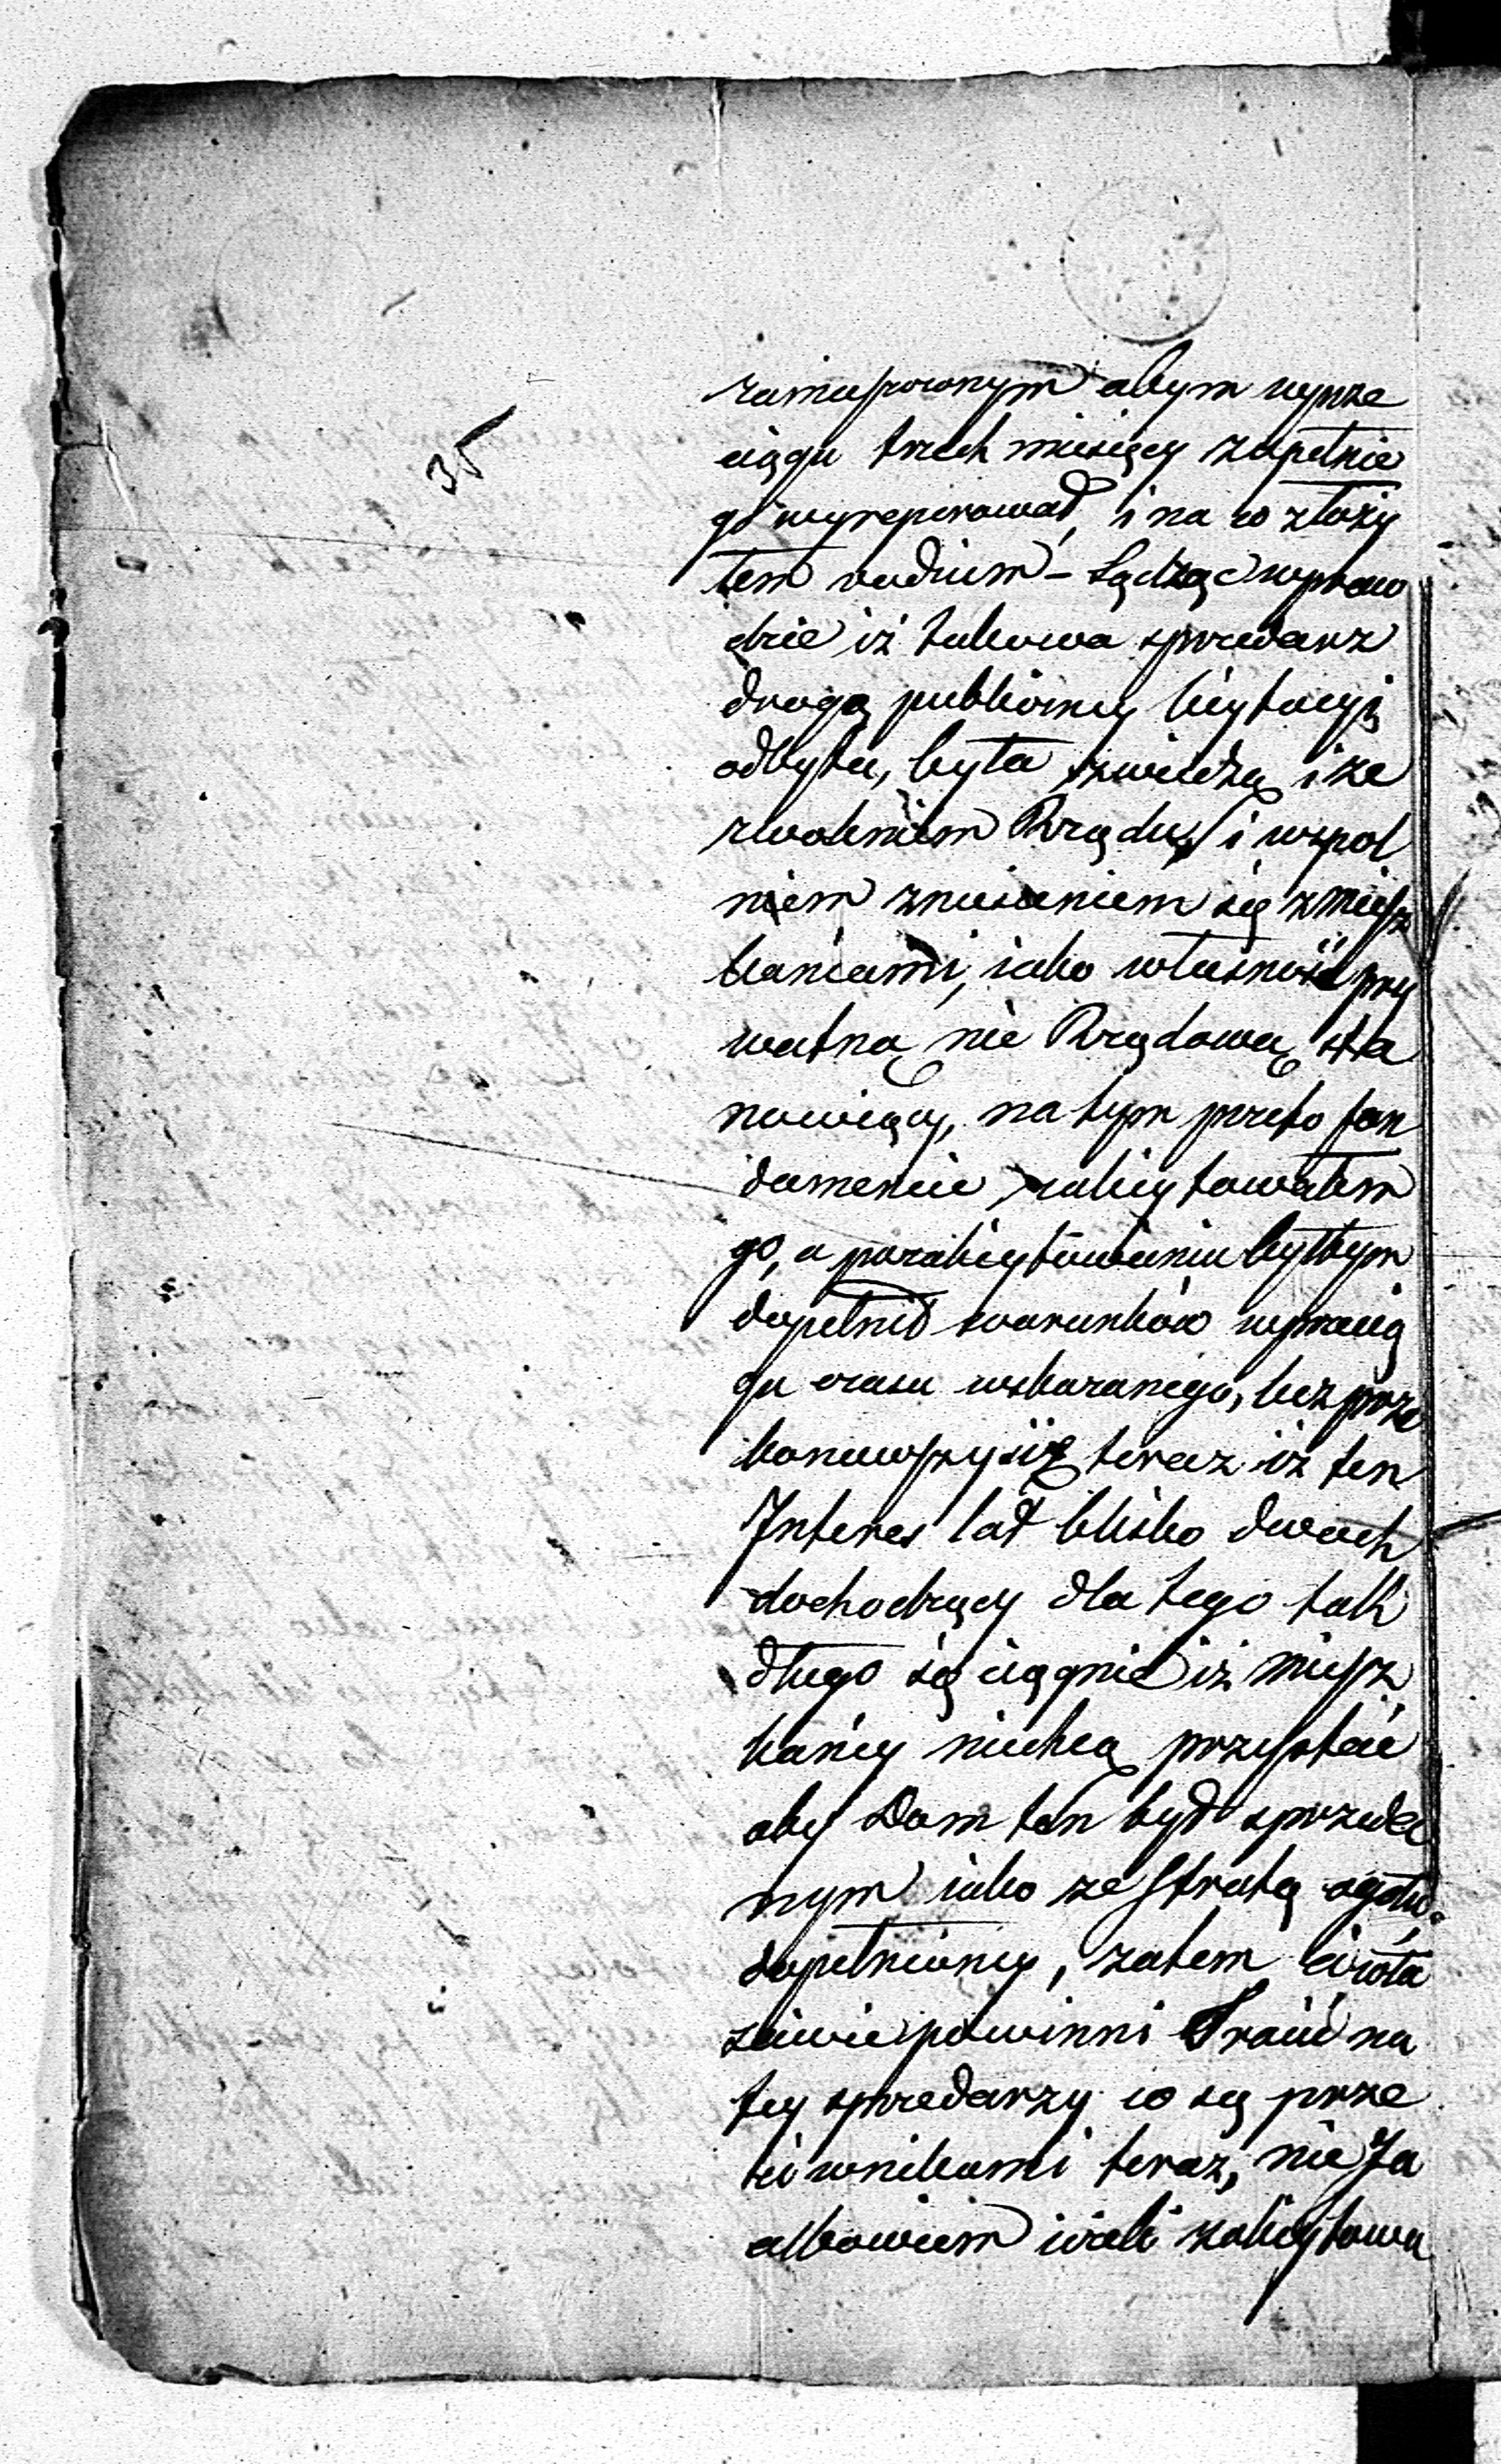 35
abym wprze
ciągu trzech miesięcy zupełnie
go wyreperował, i na co złoży
łem vadium – Sądząc wpraw
dzie iż takowa spredarz
drogą publiczney licytacyi
odbyta, była z wiedzą i ze
zwoleniem Rządu, i wspol
niem zniesieniem się z miesz
kańcami, iako własność pry
watną nie Rządową sta
nowiący, na tym przeto fun
damencie zalicytowałem
go, a po zalicytowaniu byłbym
dopełnił warunków wprzecią
gu czasu wskazanego, lecz prze
konawszy się teraz iż ten
Interes lat blisko dwuch
dochodzący dla tego tak
długo się ciągnie iż miesz
kańcy niechcą przystać
aby Dom ten był sprzeda
nym iako ze stratą ogółu
dopełnioney, zatem
powinni Tracić na
tey spredarzy co się prze
ciwnikami teraz, nie Ja
albowiem ieżeli zalicytowa